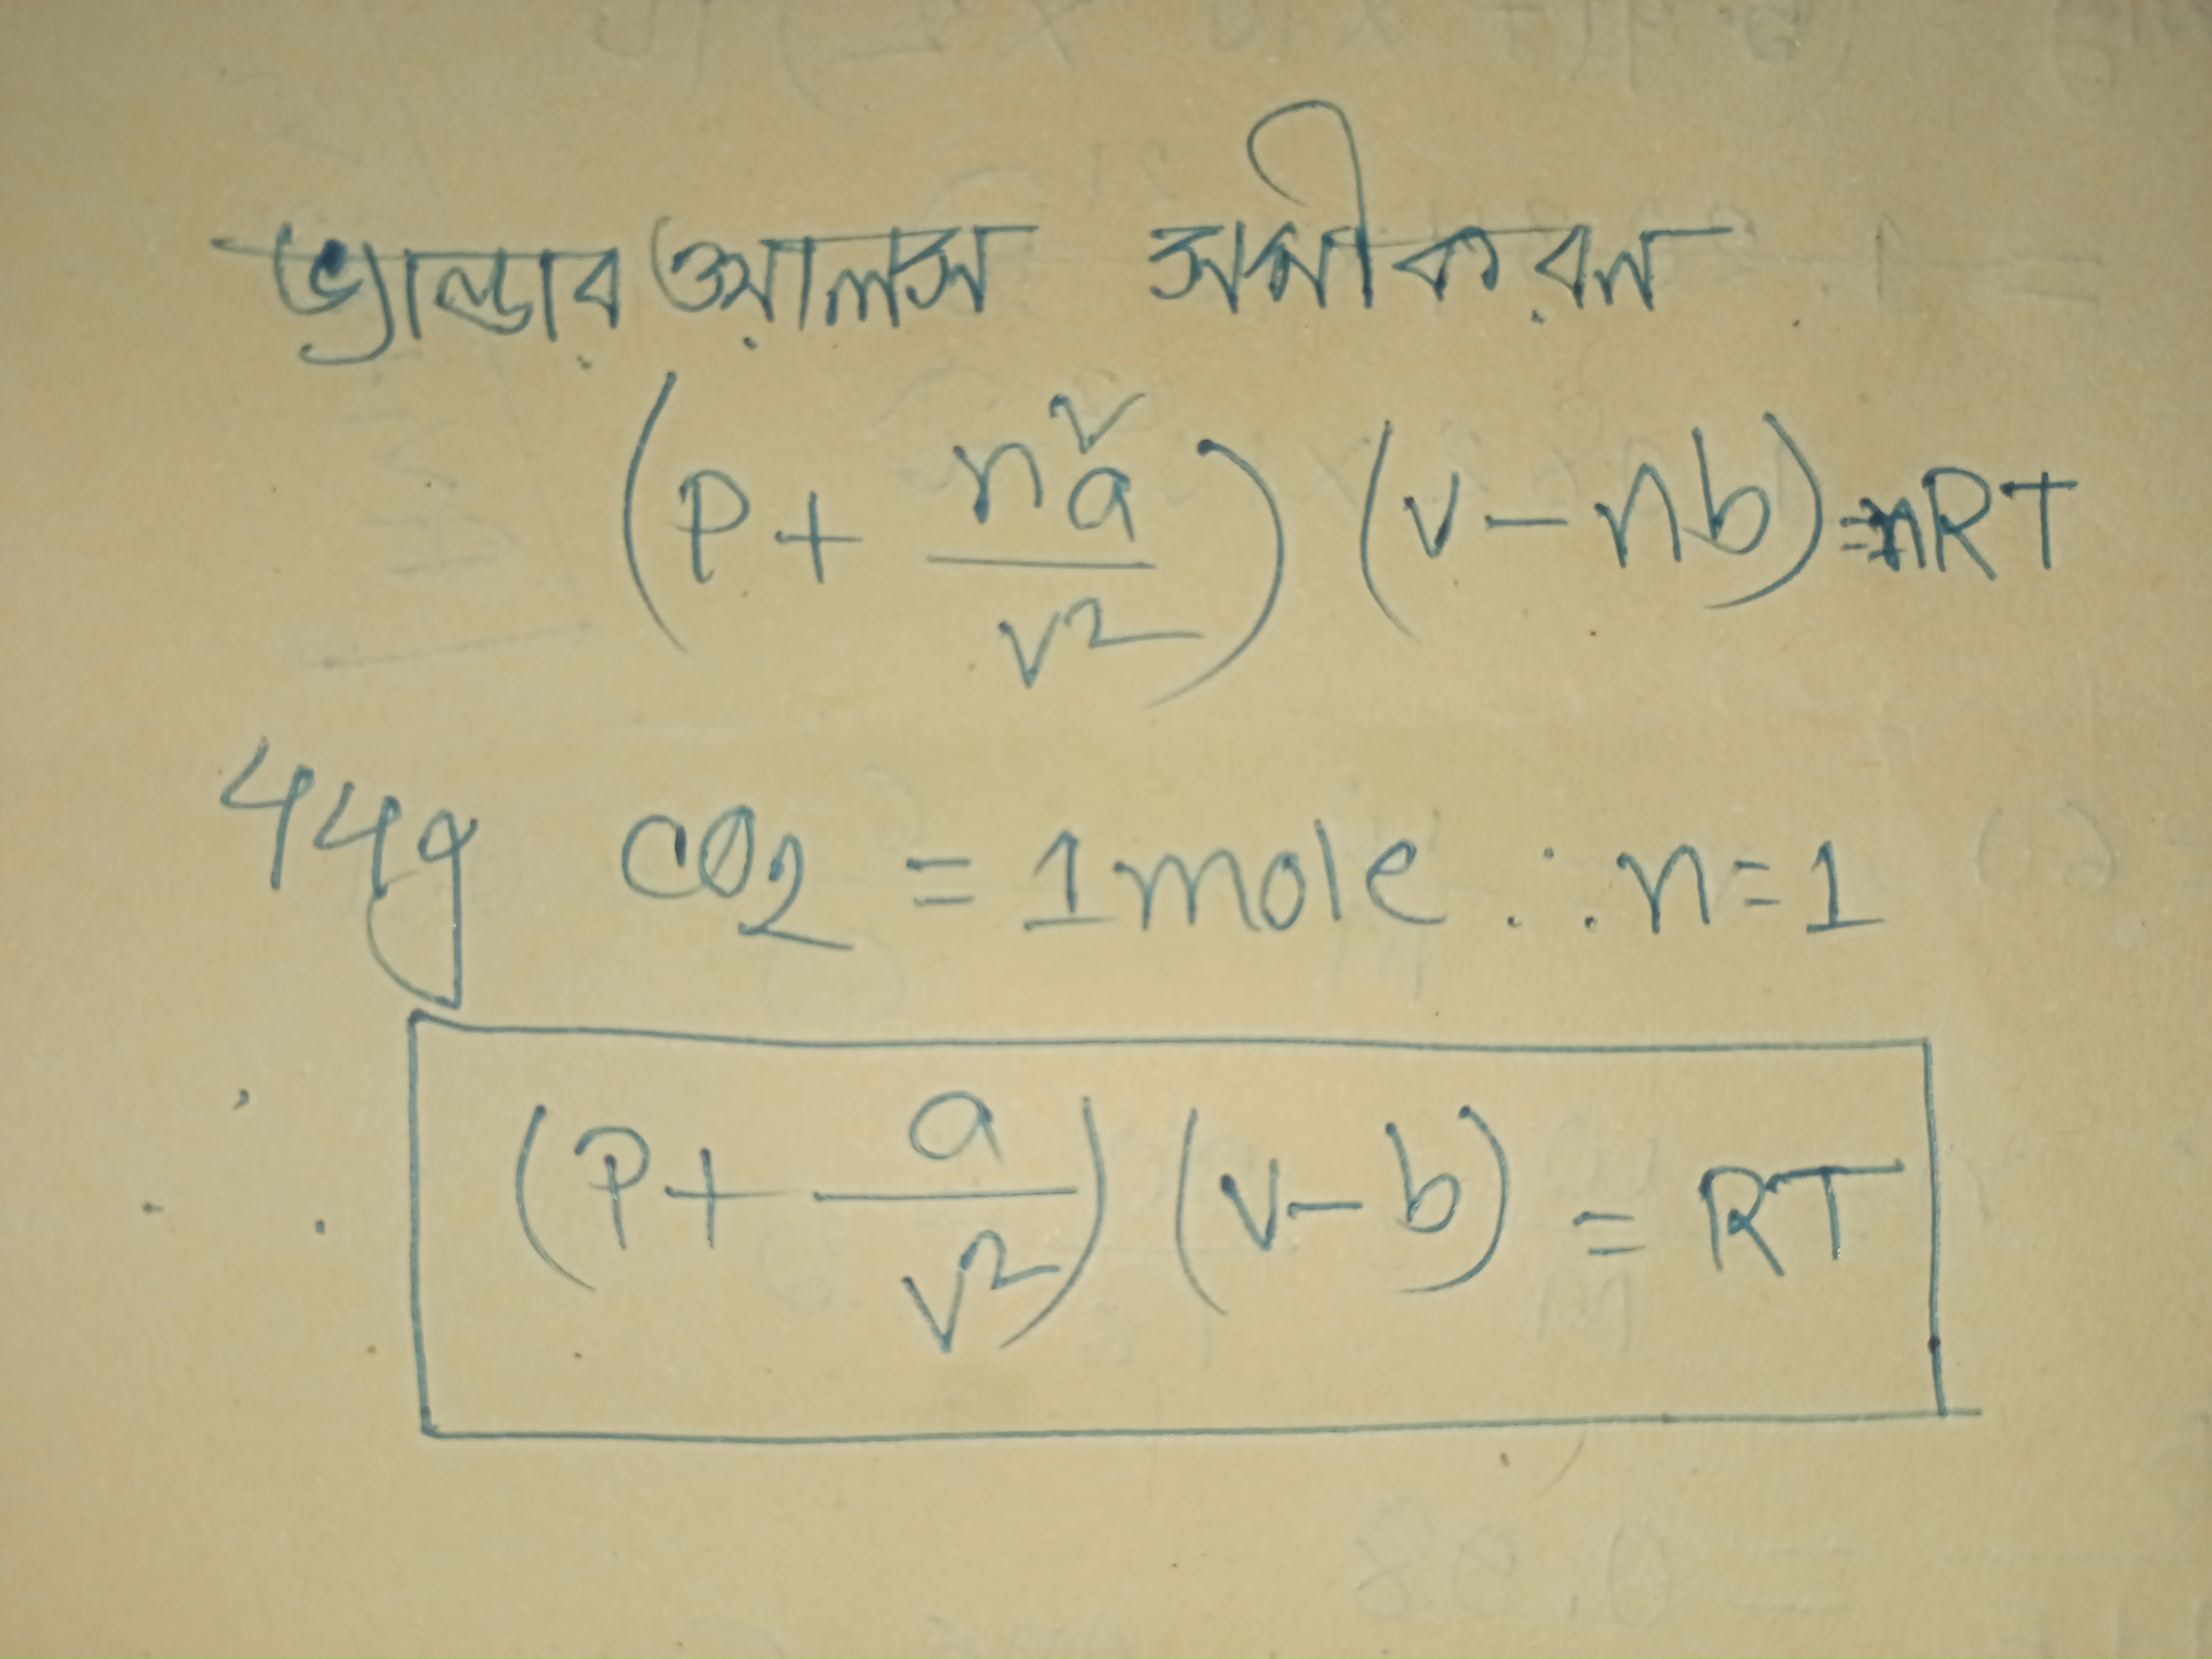 ভ্যান্ডার ওয়ালস সমীকরন
(P + n²a / v²) (v - nb) = nRT
44g CO₂ = 1 mole ∴ n = 1
∴ (P + a / v²) (v - b) = RT